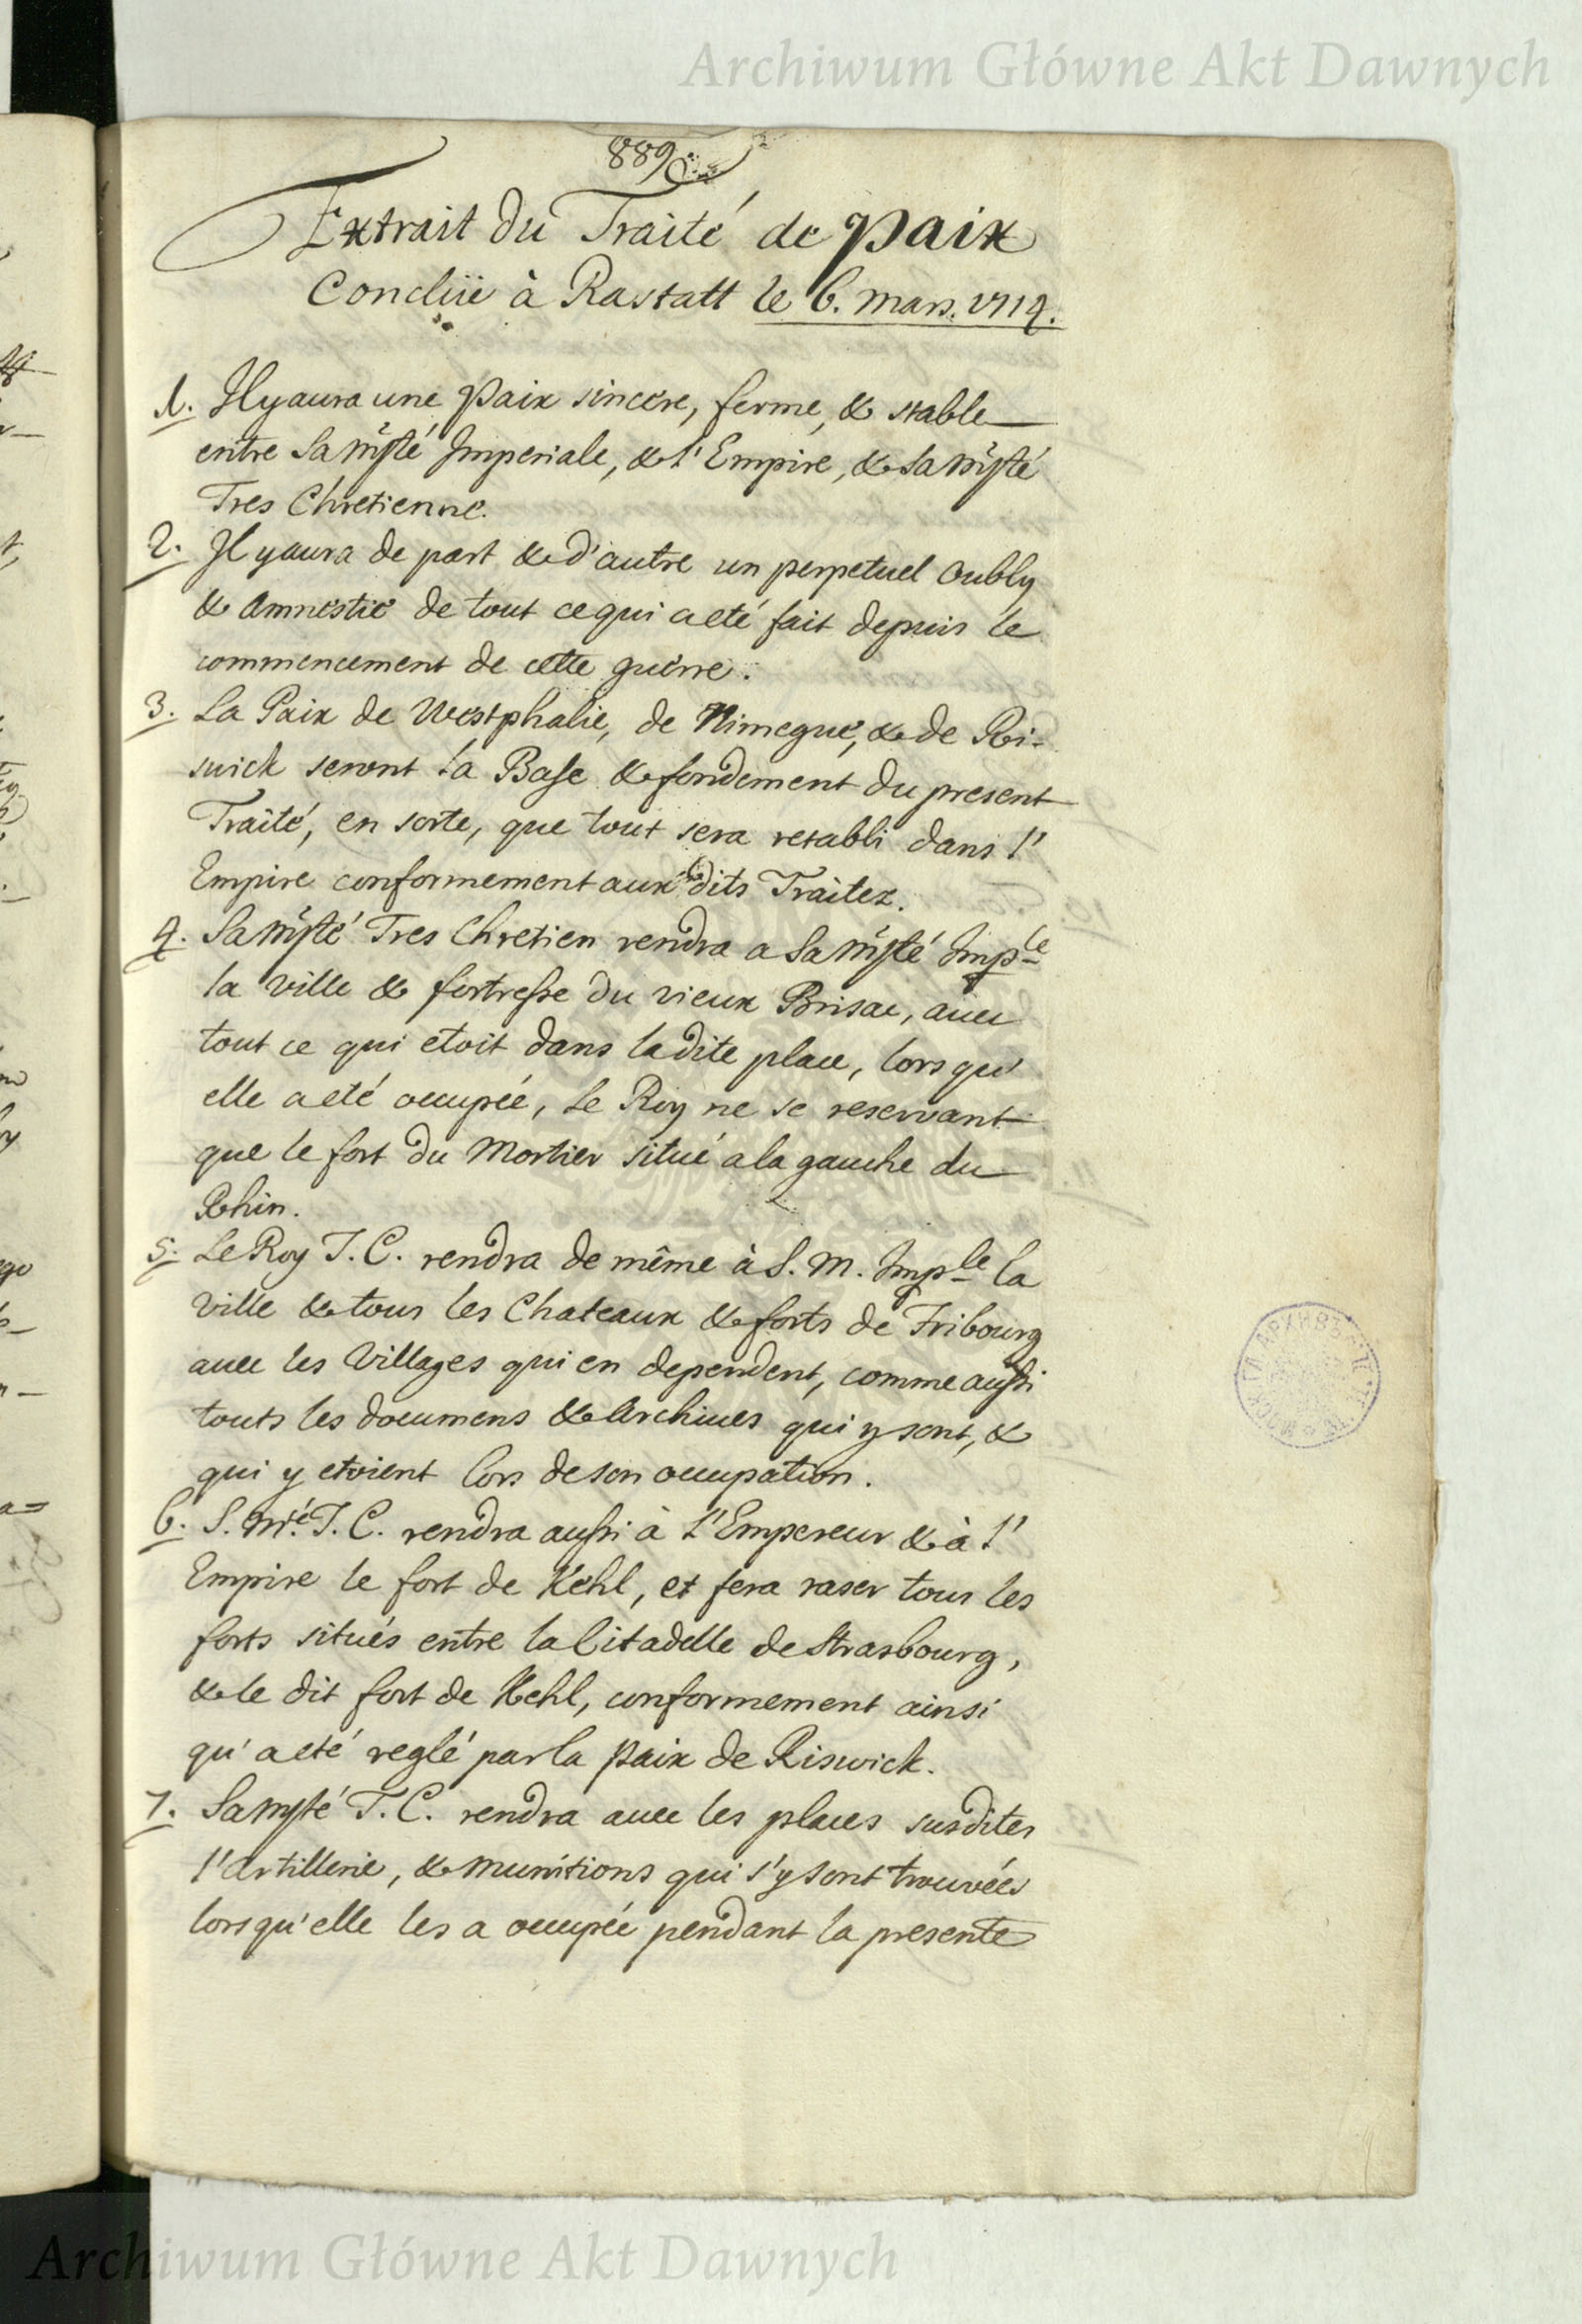 Archiwum Główne Akt Dawnych
889
Extrait du Traité de Paix
Concluë à Rastatt le 6. Mars. 1714.
1. Il y aura une Paix sincere, ferme, & stable
entre Sa Mjsté Imperiale, & l'Empire, & Sa Mjsté
Tres Chretienne.
2. Il y aura de part & d'autre un perpetuel oubly
& Amnestie de tout ce qui a eté fait depuis le
commencement de cette guerre.
3. La Paix de Westphalie, de Nimegue, & de Ri-
swick seront la Base & fondement du present
Traité, en sorte, que tout sera retabli dans l'
Empire conformement aux dits Traitez.
4. Sa Mjsté Tres Chretien rendra a Sa Mjsté Imple
la Ville & fortresse du vieux Brisac, avec
tout ce qui etoit dans la dite place, lorsqu'
elle a eté occupée, le Roy ne se reservant
que le fort du Mortier situé a la gauche du
Rhin.
5. Le Roy T. C. rendra de même à S. M. Imple la
Ville & tous les Chateaux & forts de Fribourg
avec les Villages qui en dependent, comme aussi
touts les documens & Archives qui y sont, &
qui y etoient lors de son occupation.
6. S. Mté T. C. rendra aussi à l'Empereur & à l'
Empire le fort de Kehl, et fera raser tous les
forts situés entre la Citadelle de Strasbourg,
& le dit fort de Kehl, conformement ainsi
qu'a eté reglé par la Paix de Riswick.
7. Sa Mjsté T. C. rendra avec les places susdites
l'Artillerie, & munitions qui s'y sont trouvées
lorsqu'elle les a occupée pendant la presente
Archiwum Główne Akt Dawnych